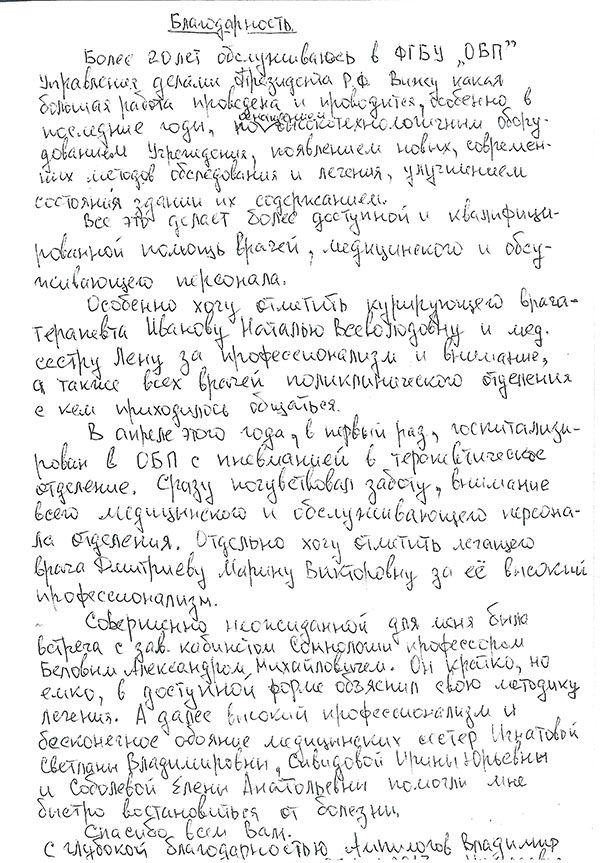 Благодарность.
Более 20 лет обслуживаюсь в ФГБУ „ОБП”
Управления делами Президента Р.Ф. Вижу какая
большая работа проведена и проводится, особенно в
последние годы, по оснащением высокотехнологичным обору-
дованием Учреждения, появлением новых, современ-
ных методов обследования и лечения, улучшением
состояния зданий их содержанием.
Все это делает более доступной и квалифици-
рованной помощь врачей, медицинского и обслу-
живающего персонала.
Особенно хочу отметить курирующего врача-
терапевта Иванову Наталью Всеволодовну и мед.
сестру Лену за профессионализм и внимание,
а также всех врачей поликлинического отделения
с кем приходилось общаться.
В апреле этого года, в первый раз, госпитализи-
рован в ОБП с пневманией в терапевтическое
отделение. Сразу почувствовал заботу, внимание
всего медицинского и обслуживающего персона-
ла отделения. Отдельно хочу отметить лечащего
врача Дмитриеву Марину Викторовну за её высокий
профессионализм.
Совершенно неожиданной для меня была
встреча с зав. кабинетом Сомнологии профессором
Беловым Александром Михайловичем. Он кратко, но
емко, в доступной форме объяснил свою методику
лечения. А далее высокий профессионализм и
бесконечное обояние медицинских сестер Игнатовой
Светланы Владимировны, Сивидовой Ирины Юрьевны
и Соболевой Елены Анатольевны помогли мне
быстро востановиться от болезни.
Спасибо всем Вам.
С глубокой благодарностью Анпилогов Владимир